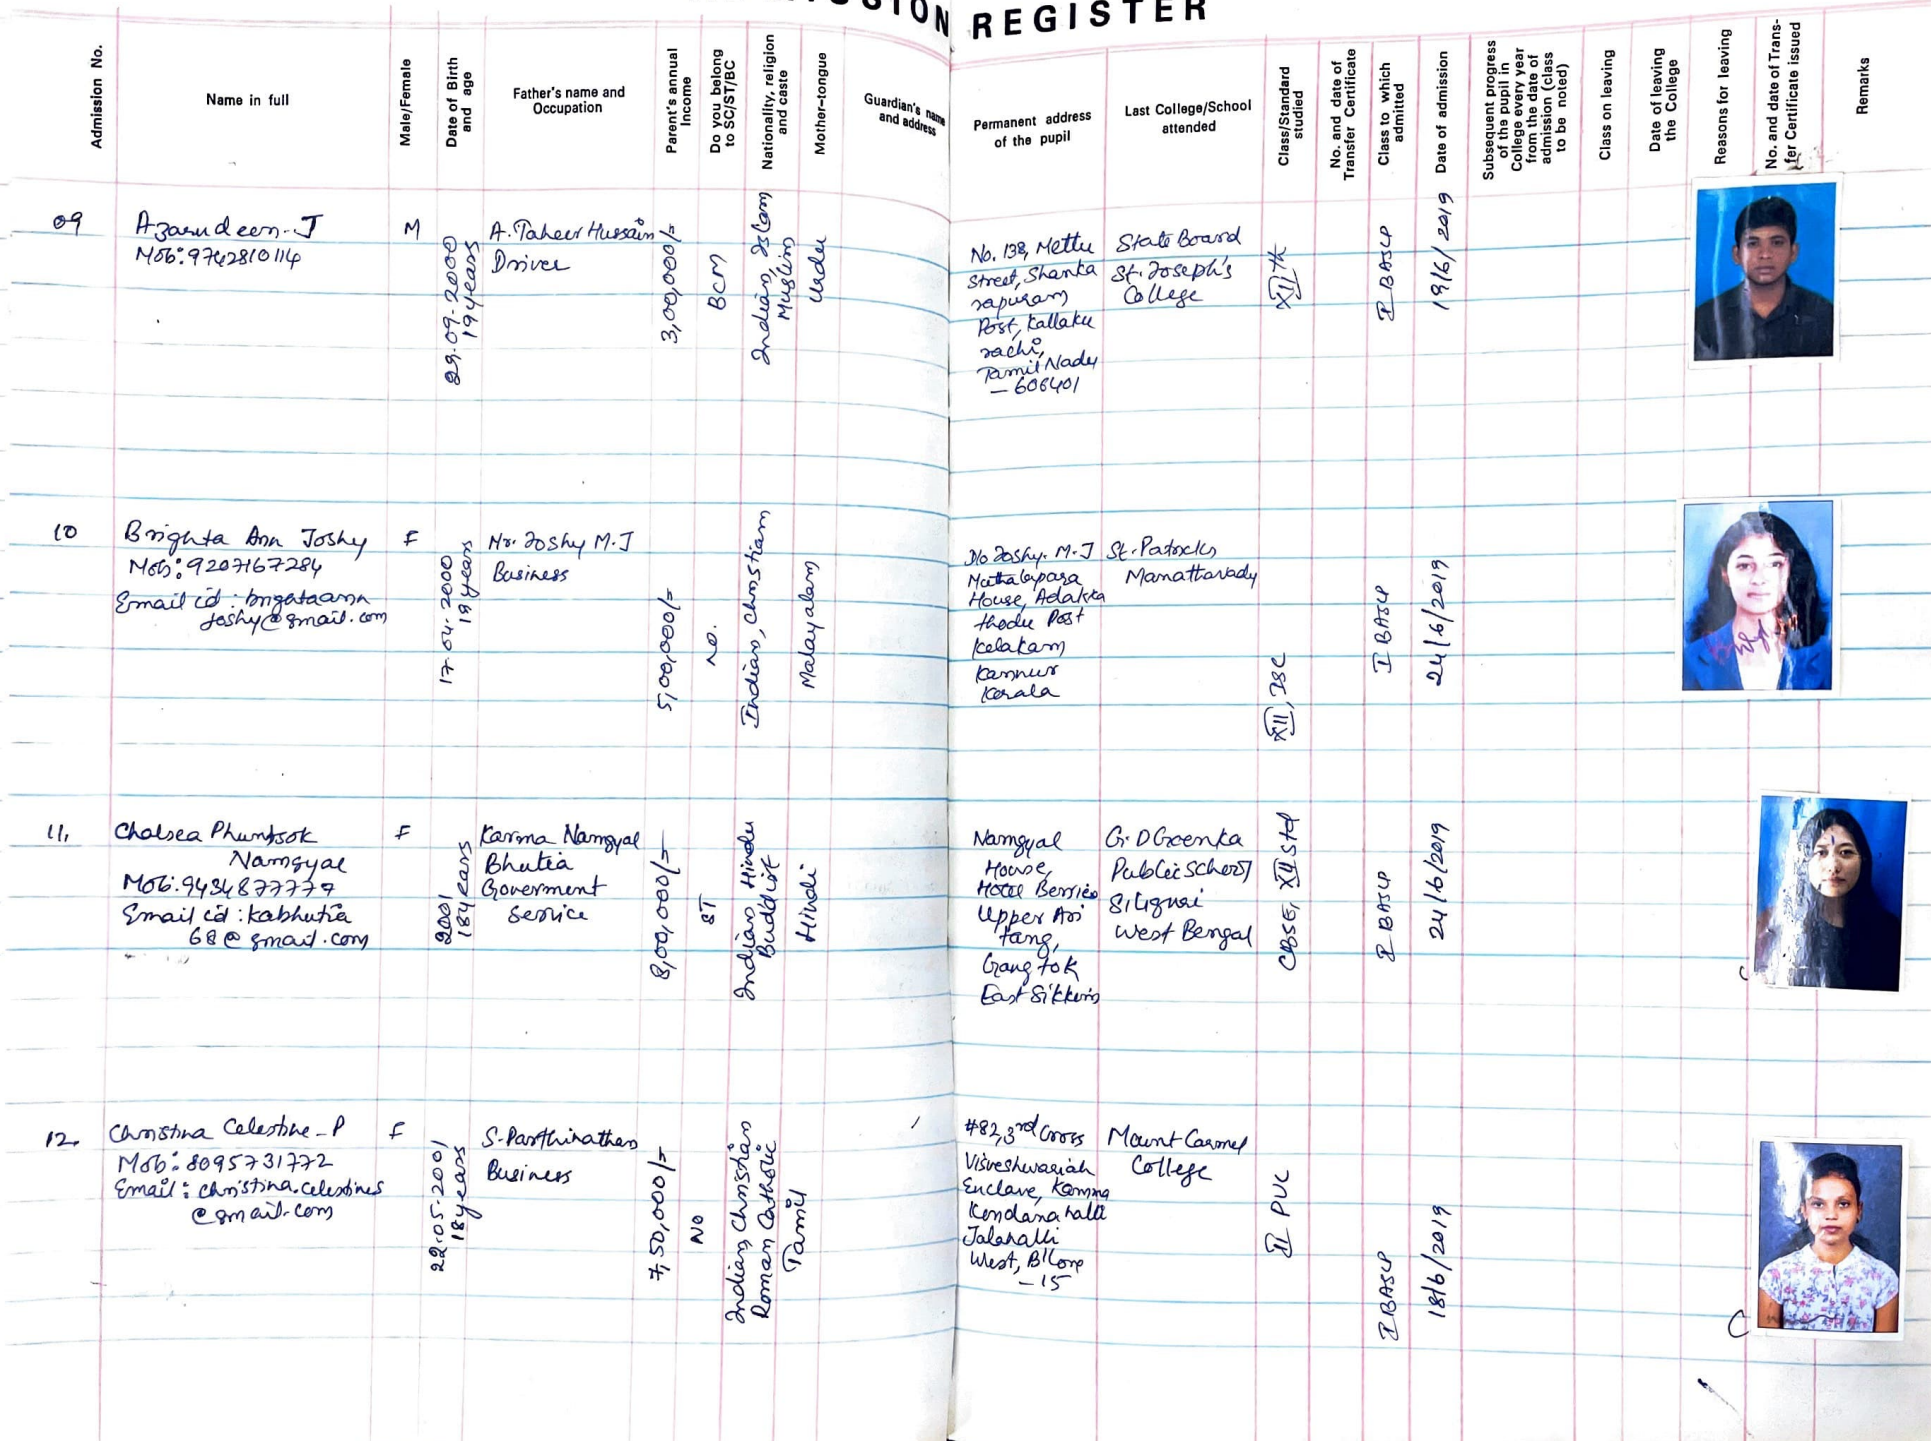 REGISTER
Admission No.
Name in full
Male/Female
Date of Birth
and age
Father's name and
Occupation
Parent's annual
Income
Do you belong
to SC/ST/BC
Nationality, religion
and caste
Mother-tongue
Guardian's name
and address
Permanent address
of the pupil
Last College/School
attended
Class/Standard
studied
No. and date of
Transfer Certificate
Class to which
admitted
Date of admission
Subsequent progress
of the pupil in
College every year
from the date of
admission (class
to be noted)
Class on leaving
Date of leaving
the College
Reasons for leaving
No. and date of Trans-
fer Certificate issued
Remarks
09
Azarudeen-J
Mob: 9742810114
M
29.09.2000
19 years
A. Taheer Hussain
Driver
3,00,000/=
BCM
Indian, Islam
Muslim
Urdu
No. 138, Mettu
Street, Shanka
rapuram
Post, Kallaku
rachi,
Tamil Nadu
- 606401
State Board
St. Joseph's
College
XIIth
I BASLP
19/6/2019
10
Brighta Ann Joshy
Mob: 9207167284
Email id: brigataann
joshy@gmail.com
F
17.04.2000
19 years
Mr. Joshy M.J
Business
5,00,000/=
No.
Indian, Christian
Malayalam
D/o Joshy. M.J
House, Adakka
thodu Post
Kelakam
Kannur
Kerala
St. Patricks
Manattavady
XII, ISC
I BASLP
24/6/2019
11.
Chalsea Phuntsok
Namgyal
Mob: 9434877779
Email id: kabhutia
68@gmail.com
F
2001
18 years
Karma Namgyal
Bhutia
Goverment
Service
8,00,000/=
ST
Indian, Hindu
Buddist
Hindi
Namgyal
House,
Hotel
Upper Ari
tang,
Gangtok
East Sikkim
G. D Goenka
Public School
Siliguri
West Bengal
CBSE, XII Std
I BASLP
24/6/2019
12.
Christina Celestine-P
Mob: 8095731772
Email: christina.celestines
@gmail.com
F
22.05.2001
18 years
S. Parthinathan
Business
7,50,000/=
NO
Indian, Christian
Roman Catholic
Tamil
#82, 3rd Cross
Visveshwariah
Enclave, Kamma
Kondanahalli
Jalahalli
West, B'lore
- 15
Mount Carmel
College
II PUC
I BASLP
18/6/2019